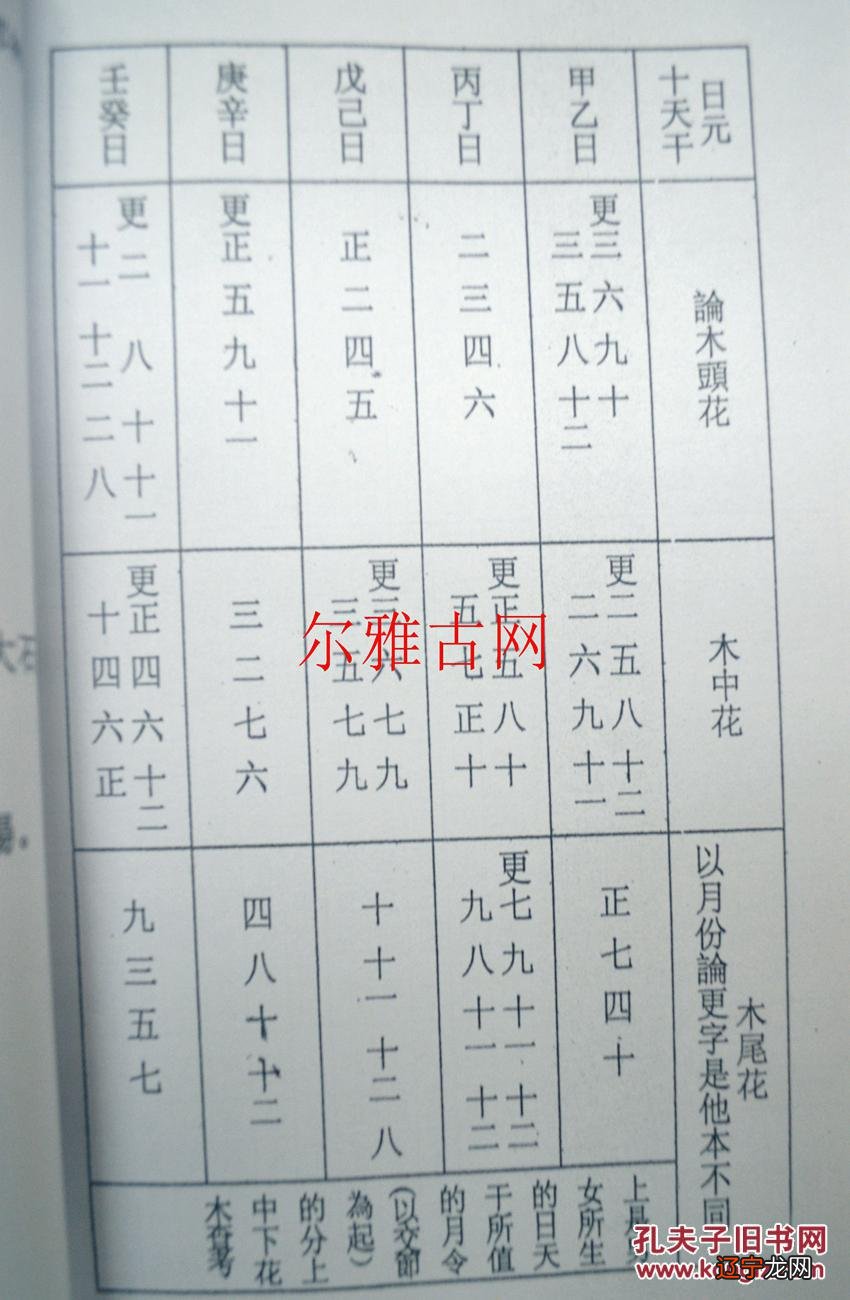 日元
十天干
論木頭花
木中花
木尾花
以月份論更字是他本不同
甲乙日
更三六九十
三五八十二
更二五八十二
二六九十一
正七四十
丙丁日
二三四六
更正五八十
五七正十
更七九十一十二
九八十一十二
戊己日
正二四五
更三六七九
三五七九
十十一十二八
庚辛日
更正五九十一
三二七六
四八十十二
壬癸日
更二八十十一
十一十二二八
更正四六十二
十四六正
九三五七
上是
女所生
的日天
干所值
的月令
(以交節
為起)
的分上
中下花
木
尔雅古网
孔夫子旧书网
辽宁龙网